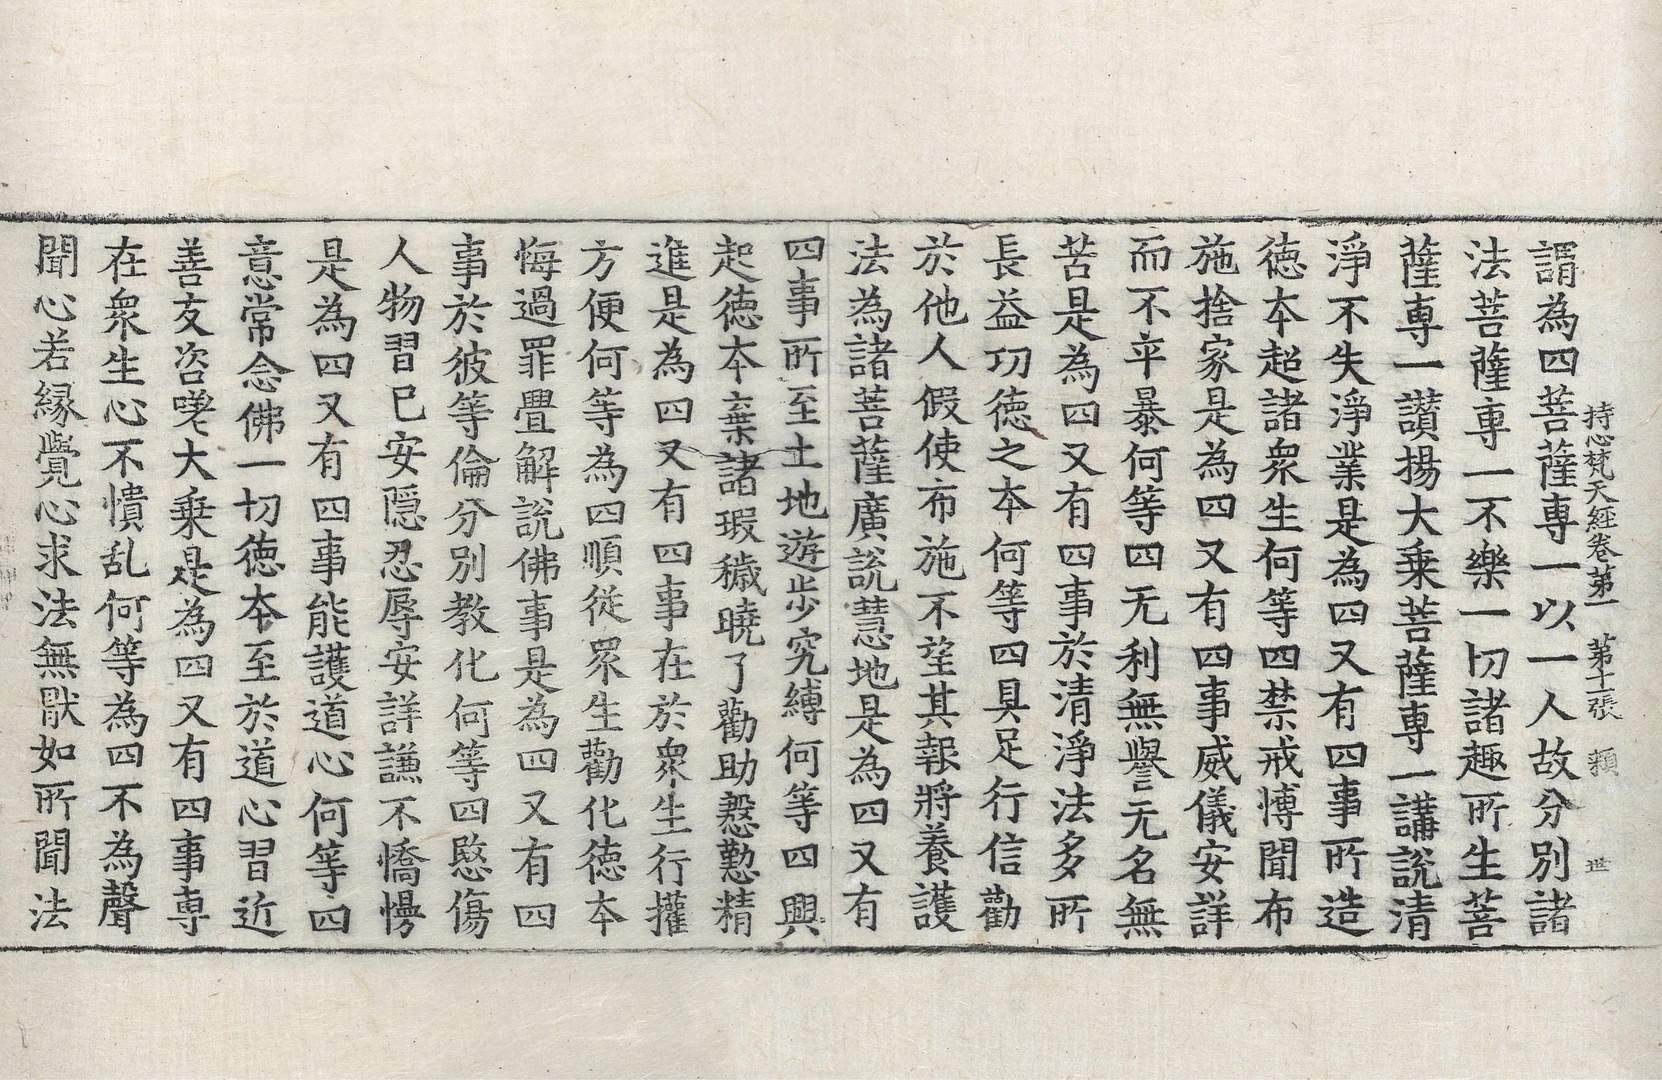 持心梵天經卷第一　第十一張　頪　世
謂為四菩薩專一以一人故分別諸
法菩薩専一不樂一切諸趣所生菩
薩専一讃揚大乗菩薩専一講說清
淨不失淨業是為四又有四事所造
徳本超諸衆生何等四禁戒愽聞布
施捨家是為四又有四事威儀安詳
而不卒暴何等四无利無譽无名無
苦是為四又有四事於清淨法多所
長益功徳之本何等四具足行信勸
於他人假使布施不望其報將養護
法為諸菩薩廣說慧地是為四又有
四事所至土地遊步究縛何等四興
起徳本棄諸瑕穢曉了勸助慇懃精
進是為四又有四事在於衆生行權
方便何等為四順従眾生勸化徳本
悔過罪疊解說佛事是為四又有四
事於彼等倫分別教化何等四愍傷
人物習已安隱忍辱安詳謙不憍慢
是為四又有四事能護道心何等四
意常念佛一切徳本至於道心習近
善友咨嗟大乗是為四又有四事専
在衆生心不憒乱何等為四不為聲
聞心若縁覺心求法無猒如所聞法